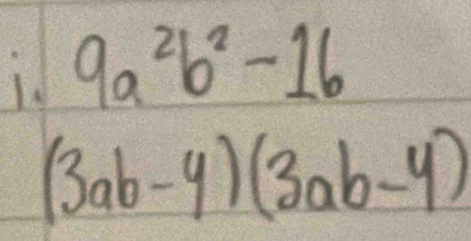 i. 9a²b² - 16
(3ab - 4)(3ab - 4)